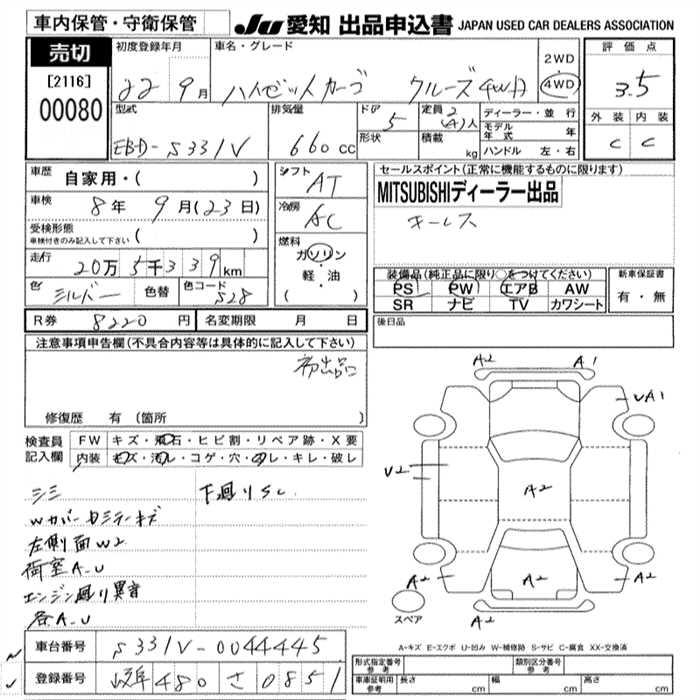 車内保管・守衛保管
JU 愛知 出品申込書 JAPAN USED CAR DEALERS ASSOCIATION
売切
[2116]
00080
初度登録年月
22 9月
車名・グレード
ハイゼットカーゴ クルーズ4WD
2WD
4WD
評価点
3.5
外装 内装
C C
型式
EBD-S331V
排気量
660cc
ドア
5
形状
定員 2(4)人
積載 kg
ディーラー・並行
モデル年式 年
ハンドル 左・右
車歴 自家用・( )
車検 8年 9月(23日)
受検形態
車検付きのみ記入して下さい ( )
走行 20万5千339km
色 シルバー 色替 色コード S28
シフト
AT
冷房
AC
燃料
ガソリン
・軽・油
( )
セールスポイント(正常に機能するものに限ります)
MITSUBISHIディーラー出品
キーレス
装備品(純正品に限り○をつけてください)
PS PW エアB AW
SR ナビ TV カワシート
新車保証書
有・無
R券 8220円 名変期限 月 日
後日品
注意事項申告欄(不具合内容等は具体的に記入して下さい)
初出品
修復歴 有(箇所 )
検査員記入欄
FW キズ・飛石・ヒビ割・リペア跡・X要
内装 キズ・汚れ・コゲ・穴・スレ・キレ・破レ
シミ 下廻りSC
Wカバー内ステーキズ
左側面W2
荷室A.U
エンジン廻り異音
各A.U
A2 A1
UA1
U2
A2
A2 A2 A2
A2
スペア
A-キズ E-エクボ U-凹み W-補修跡 S-サビ C-腐食 XX-交換済
車台番号 S331V-0044445
登録番号 岐阜 480 さ 0851
形式指定番号 参考
類別区分番号 参考
車庫証明用 参考
長さ cm 幅 cm 高さ cm